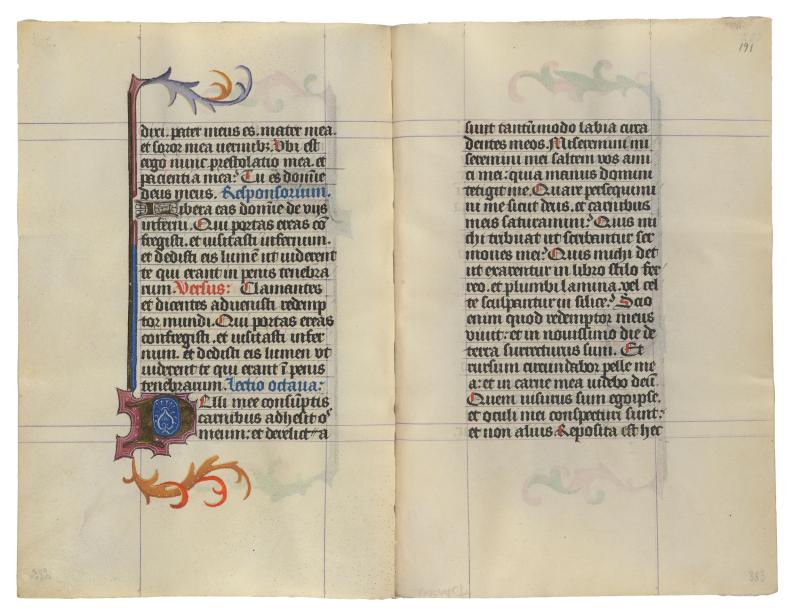 dixi. pater meus es. mater mea.
et soror mea vermibꝫ. Vbi est
ergo nunc prestolatio mea. et
paciencia mea? Tu es domīe
deus meus. Responsorium.
Libera eas domīe de viis
inferni. Qui portas ereas cō
fregisti. et visitasti infernum.
et dedisti eis lumē ut viderent
te qui erant in penis tenebra
rum. Versus: Clamantes
et dicentes advenisti redemp
tor mundi. Qui portas ereas
confregisti. et visitasti infer
num. et dedisti eis lumen vt
viderent te qui erant ī penis
tenebrarum. Lectio octava:
Pelli mee consūptis
carnibus adhesit os
meum: et derelicta
191
sunt tantūmodo labia circa
dentes meos. Miseremini mi
seremini mei saltem vos ami
ci mei: quia manus domini
tetigit me. Quare persequimi
ni me sicut deus. et carnibus
meis saturamini? Quis mi
chi tribuat ut scribantur ser
mones mei? Quis michi det
ut exarentur in libro stilo fer
reo. et plumbi lamina. vel cel
te sculpantur in silice? Scio
enim quod redemptor meus
vivit: et in novissimo die de
terra surrecturus sum. Et
rursum circundabor pelle me
a: et in carne mea videbo deū.
Quem visurus sum ego ipse.
et oculi mei conspecturi sunt:
et non alius. Reposita est hec
383